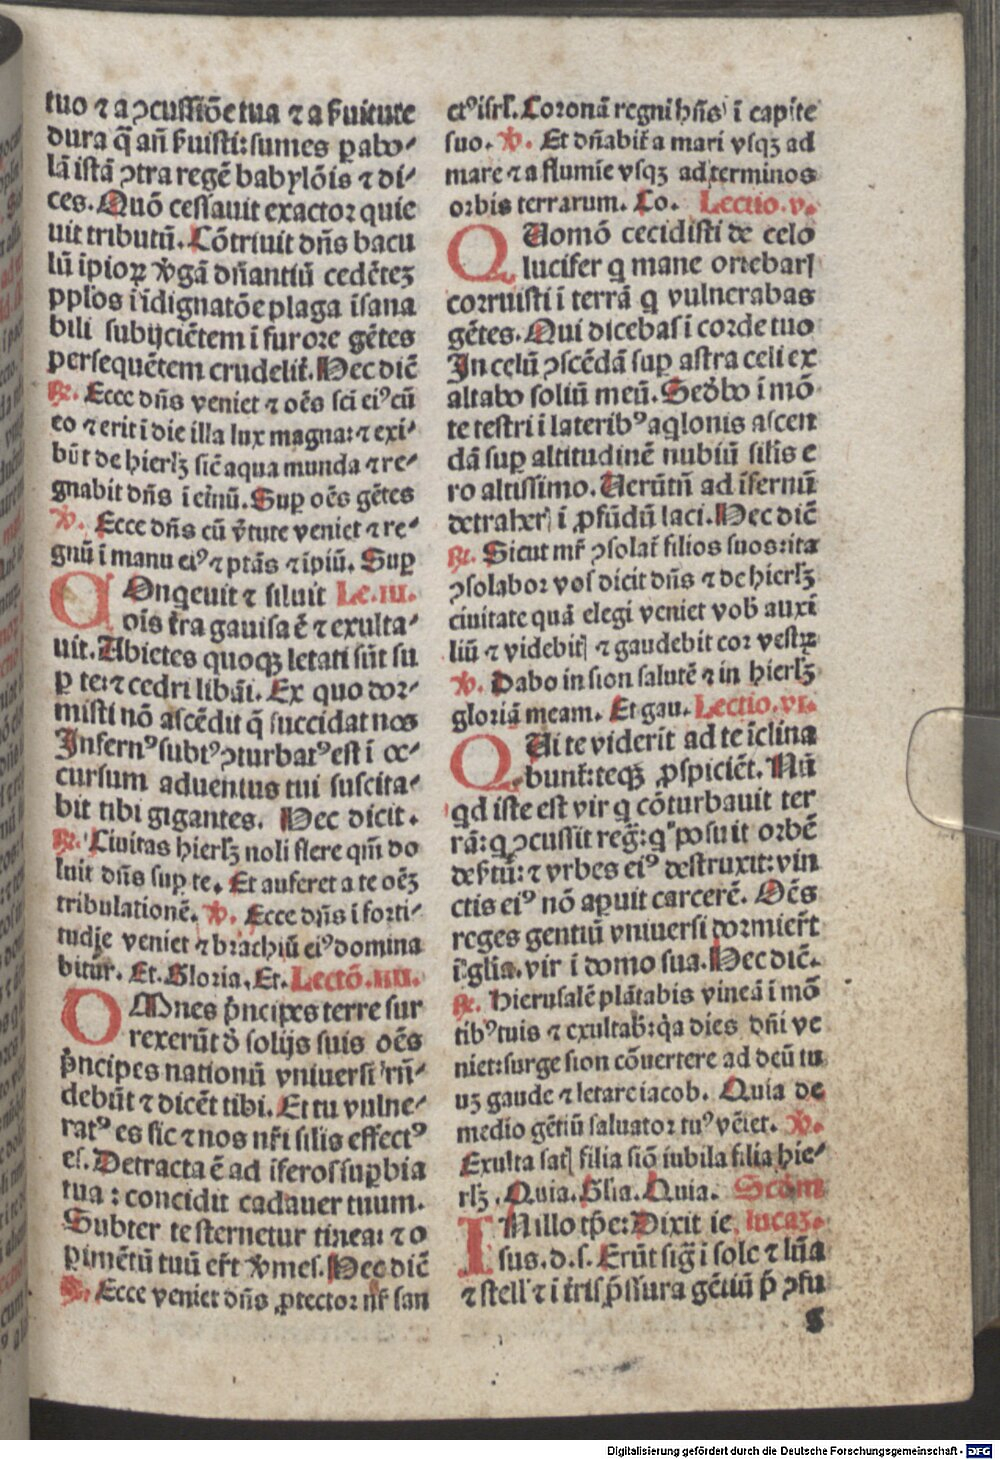 tuo ⁊ a ꝯcussiõe tua ⁊ a ẜuitute
dura q̃ añ ẜuisti: sumes ꝑabo⸗
lã istã ꝯtra regẽ babylõis ⁊ di⸗
ces. Quõ cessauit exactor quie
uit tributũ. Cõtriuit dñs bacu
lũ ipioꝝ v̾gã dñantiũ cedẽteꝫ
pplo̾s i ĩdignatõe plaga ĩsana
bili subijciẽtem ĩ furore gẽtes
persequẽtem crudelit̃. Hec diẽ
℞. Ecce dñs veniet ⁊ oẽs sci ei⁹ cũ
eo ⁊ erit ĩ die illa lux magna: ⁊ exi⸗
bũt de hierlꝫ sic̃ aqua munda ⁊ re⸗
gnabit dñs ĩ etnũ. Suꝑ oẽs gẽtes
℣. Ecce dñs cũ v̾tute veniet ⁊ re⸗
gnũ ĩ manu ei⁹ ⁊ ptãs ⁊ ipiũ. Suꝑ
COnqeuit ⁊ siluit Le.iii.
oĩs t̃ra gauisa ẽ ⁊ exulta⸗
uit. Abietes quoqꝫ letati sũt su
ꝑ te: ⁊ cedri libãi. Ex quo dor⸗
misti nõ ascẽdit q̃ succidat nos
Infern⁹ subt⁹ ꝯturbat⁹ est ĩ oc⸗
cursum aduentus tui suscita⸗
bit tibi gigantes. Hec dicit.
℞. Ciuitas hierlꝫ noli flere qm̃ do
luit dñs suꝑ te. Et auferet a te oẽꝫ
tribulationẽ. ℣. Ecce dñs ĩ forti⸗
tudĩe veniet ⁊ brachiũ ei⁹ domina
bitur̃. Et. Gloria. Et. Lectõ.iiii.
OMnes p̾ncipes terre sur
rexerũt d̾ solijs suis oẽs
p̾ncipes nationũ vniuersi rñ⸗
debũt ⁊ dicẽt tibi. Et tu vulne⸗
rat⁹ es sic ⁊ nos nr̃i silis effect⁹
es. Detracta ẽ ad ĩferos suꝑbia
tua : concidit cadauer tuum.
Subter te sternetur tinea: ⁊ o
pimẽtũ tuũ er̃t v̾mes. Hec diẽ
℞. Ecce veniet dñs ꝓtector nr̃ san
ct⁹ isrl̃. Coronã regni hñs ĩ capite
suo. ℣. Et dñabit̃ a mari vsqꝫ ad
mare ⁊ a flumie vsqꝫ ad terminos
orbis terrarum. Co. Lectio.v.
QUomõ cecidisti de celo
lucifer q mane oriebaris
corruisti ĩ terrã q vulnerabas
gẽtes. Qui dicebas ĩ corde tuo
In celũ ꝯscẽdã suꝑ astra celi ex
altabo soliũ meũ. Sed̾bo ĩ mõ
te testri ĩ laterib⁹ aqlonis ascen
dã suꝑ altitudinẽ nubiũ silis e
ro altissimo. Uerũtñ ad ĩfernũ
detraher̃ ĩ ꝓfũdũ laci. Hec diẽ
℞. Sicut mr̃ ꝯsolat̃ filios suos: ita
ꝯsolabor vos dicit dñs ⁊ de hierlꝫ
ciuitate quã elegi veniet vob̾ auxi
liũ ⁊ videbitis ⁊ gaudebit cor vestꝝ
℣. Dabo in sion salutẽ ⁊ in hierlꝫ
gloriã meam. Et gau. Lectio.vi.
QUi te viderĩt ad te ĩclina
bunt̃: teqꝫ ꝓspiciẽt. Nũ
qd iste est vir q cõturbauit ter
rã: q ꝯcussit reg̃: q posuit orbẽ
deẜtũ: ⁊ vrbes ei⁹ destruxit: vin
ctis ei⁹ nõ aꝑuit carcerẽ. Oẽs
reges gentiũ vniuersi dormier̃t
ĩ glia. vir ĩ domo sua. Hec diẽ.
℞. Hierusalẽ plãtabis vineã ĩ mõ
tib⁹ tuis ⁊ exultab̾: qa dies dñi ve
niet: surge sion cõuertere ad deũ tu
uꝫ gaude ⁊ letare iacob. Quia de
medio gẽtiũ saluator tu⁹ vẽiet. ℣.
Exulta satis filia siõ iubila filia hie⸗
rlꝫ. Quia. Glia. Quia. Scd̃m
INillo tp̃e: Dixit ie lucaꝫ.
sus. d. s. Erũt sig̃ ĩ sole ⁊ lũa
⁊ stell̾ ⁊ ĩ t̾ris p̾ssura gẽtiũ p̾ ꝯfu
s
Digitalisierung gefördert durch die Deutsche Forschungsgemeinschaft - DFG